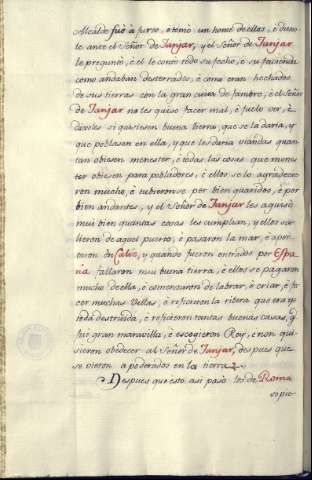 Alcalde fuè à furto, è tomó un home de ellos, è duxo
le ante el Señor de Tanjar, y el Señor de Tanjar
le preguntó, è el le contò todo su fecho, è su facienda
como andaban desterrados, è como eran hechados
de sus tierras con la gran cuita de fambre, è el Señor
de Tanjar no les quiso facer mal, è fuelo ver, è
dixoles si quisiesen buena tierra, que se la daria, y
que poblasen en ella, y que les daria viandas quan-
tan obiesen menester, è todas las cosas que menes
ter obiesen para pobladores, è ellos se lo agradecie-
ron mucho, è tubieronse por bien guaridos, è por
bien andantes, y el Señor de Tanjar les aguisó
mui bien quantas cosas les cumplian, y ellos sa-
lieron de aquel puerto, è pasaron la mar, è apor-
taron en Calis, y quando fueron entrados por Espa
ña fallaron mui buena tierra, è ellos se pagaron
mucho de ella, è comenzaron de labrar, è criar, è fa
cer muchas Villas, è reficieron la ribera que era ya
toda destruida, è reficieron tantas buenas casas, q.
fuè gran maravilla, è escogieron Rey, è non qui-
sieron obedecer al Señor de Tanjar, despues que
se vieron apoderados en la tierra.
Despues que esto asi pasò los de Roma
sopie-